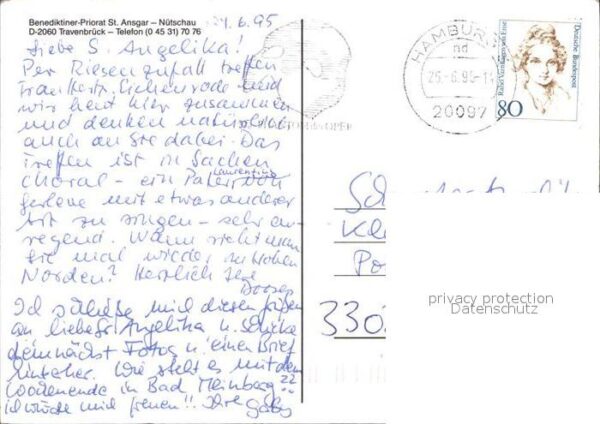 Benediktiner-Priorat St. Ansgar – Nütschau
D-2060 Travenbrück – Telefon (0 45 31) 70 76
24.6.95
Liebe S. Angelika!
Per Riesenzufall treffen
und
wir heut hier zusammen
und denken natürlich
auch an Sie dabei. Das
Treffen ist in Sachen
Choral – ein Pater
mit etwas anderer
Art zu singen – sehr an-
regend. Wann sieht man
Sie mal wieder im hohen
Norden? Herzlich Ihre
Ich schließe mich diesen
an liebe S. Angelika u. schicke
demnächst Fotos u. einen Brief
hinterher. Wie steht es mit dem
Wochenende in Bad Meinberg??
ich würde mich freuen!! Ihre Gaby
HAMBURG
20097
Deutsche Bundespost
Rahel Varnhagen von Ense
80
Kl
Po
330
privacy protection
Datenschutz